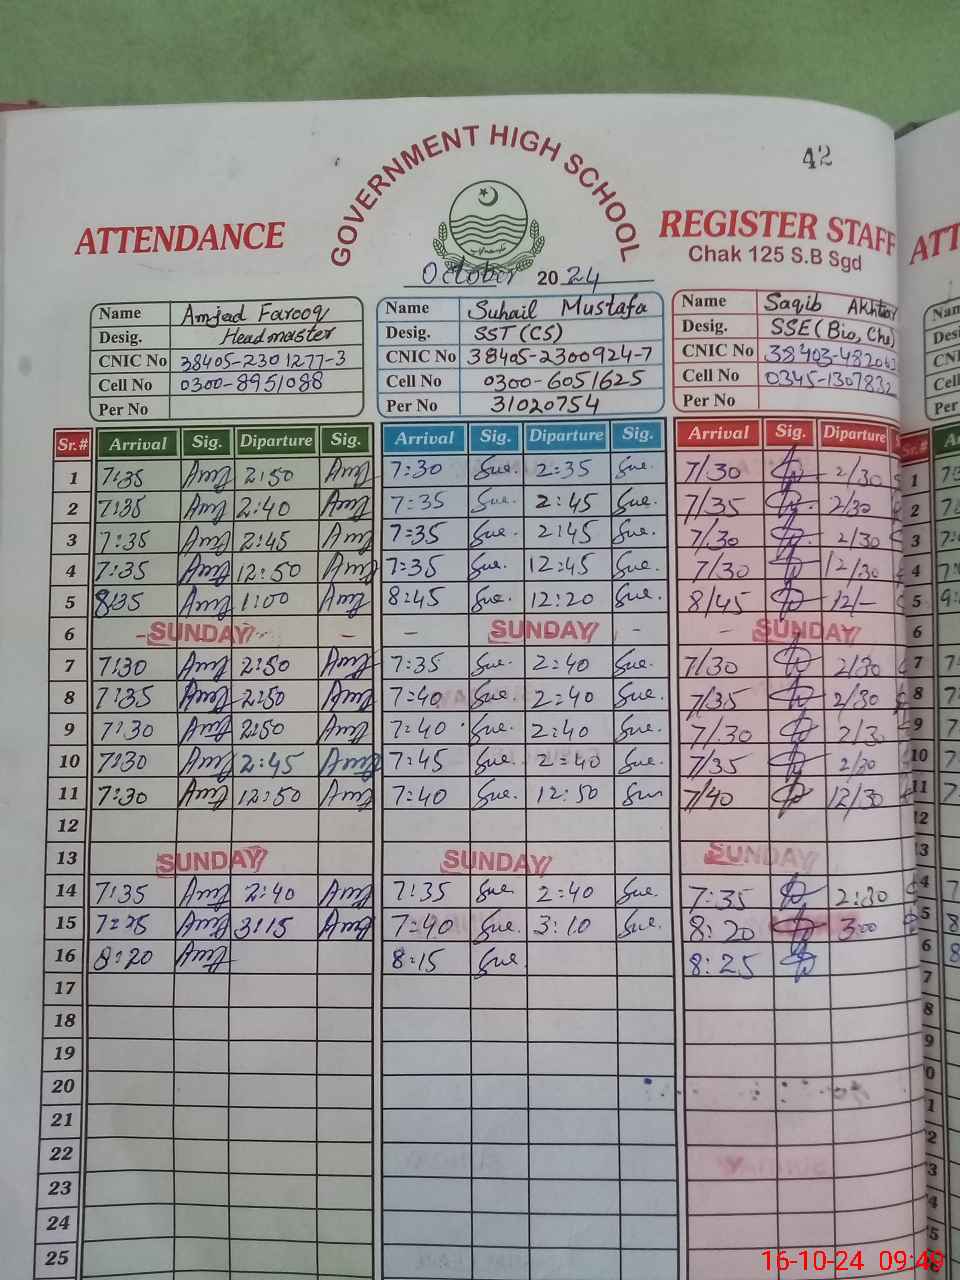 42
GOVERNMENT HIGH SCHOOL
ATTENDANCE
REGISTER STAFF
Chak 125 S.B Sgd
October 2024
Name Amjad Farooq
Desig. Headmaster
CNIC No 38405-2301277-3
Cell No 0300-8951088
Per No
Name Suhail Mustafa
Desig. SST (CS)
CNIC No 38405-2300924-7
Cell No 0300-6051625
Per No 31020754
Name Saqib Akhtar
Desig. SSE (Bio, Che)
CNIC No 38403-482063
Cell No 0345-1307832
Per No
Sr.# Arrival Sig. Diparture Sig. Arrival Sig. Diparture Sig. Arrival Sig. Diparture
1 7:35 2:50 7:30 Sue. 2:35 Sue. 7/30 2/30
2 7:35 2:40 7:35 Sue. 2:45 Sue. 7/35 2/30
3 7:35 2:45 7:35 Sue. 2:45 Sue. 7/30 2/30
4 7:35 12:50 7:35 Sue. 12:45 Sue. 7/30 12/30
5 8:35 1:00 8:45 Sue. 12:20 Sue. 8/45 12/-
6 - SUNDAY - - SUNDAY - - SUNDAY
7 7:30 2:50 7:35 Sue. 2:40 Sue. 7/30 2/30
8 7:35 2:50 7:40 Sue. 2:40 Sue. 7/35 2/30
9 7:30 2:50 7:40 Sue. 2:40 Sue. 7/30 2/30
10 7:30 2:45 7:45 Sue. 2:40 Sue. 7/35 2/30
11 7:30 12:50 7:40 Sue. 12:50 7/40 12/30
12
13 SUNDAY SUNDAY SUNDAY
14 7:35 2:40 7:35 Sue. 2:40 Sue. 7:35 2:30
15 3:15 7:40 Sue. 3:10 Sue. 8:20 3:00
16 8:20 8:15 Sue. 8:25
17
18
19
20
21
22
23
24
25
16-10-24 09:49